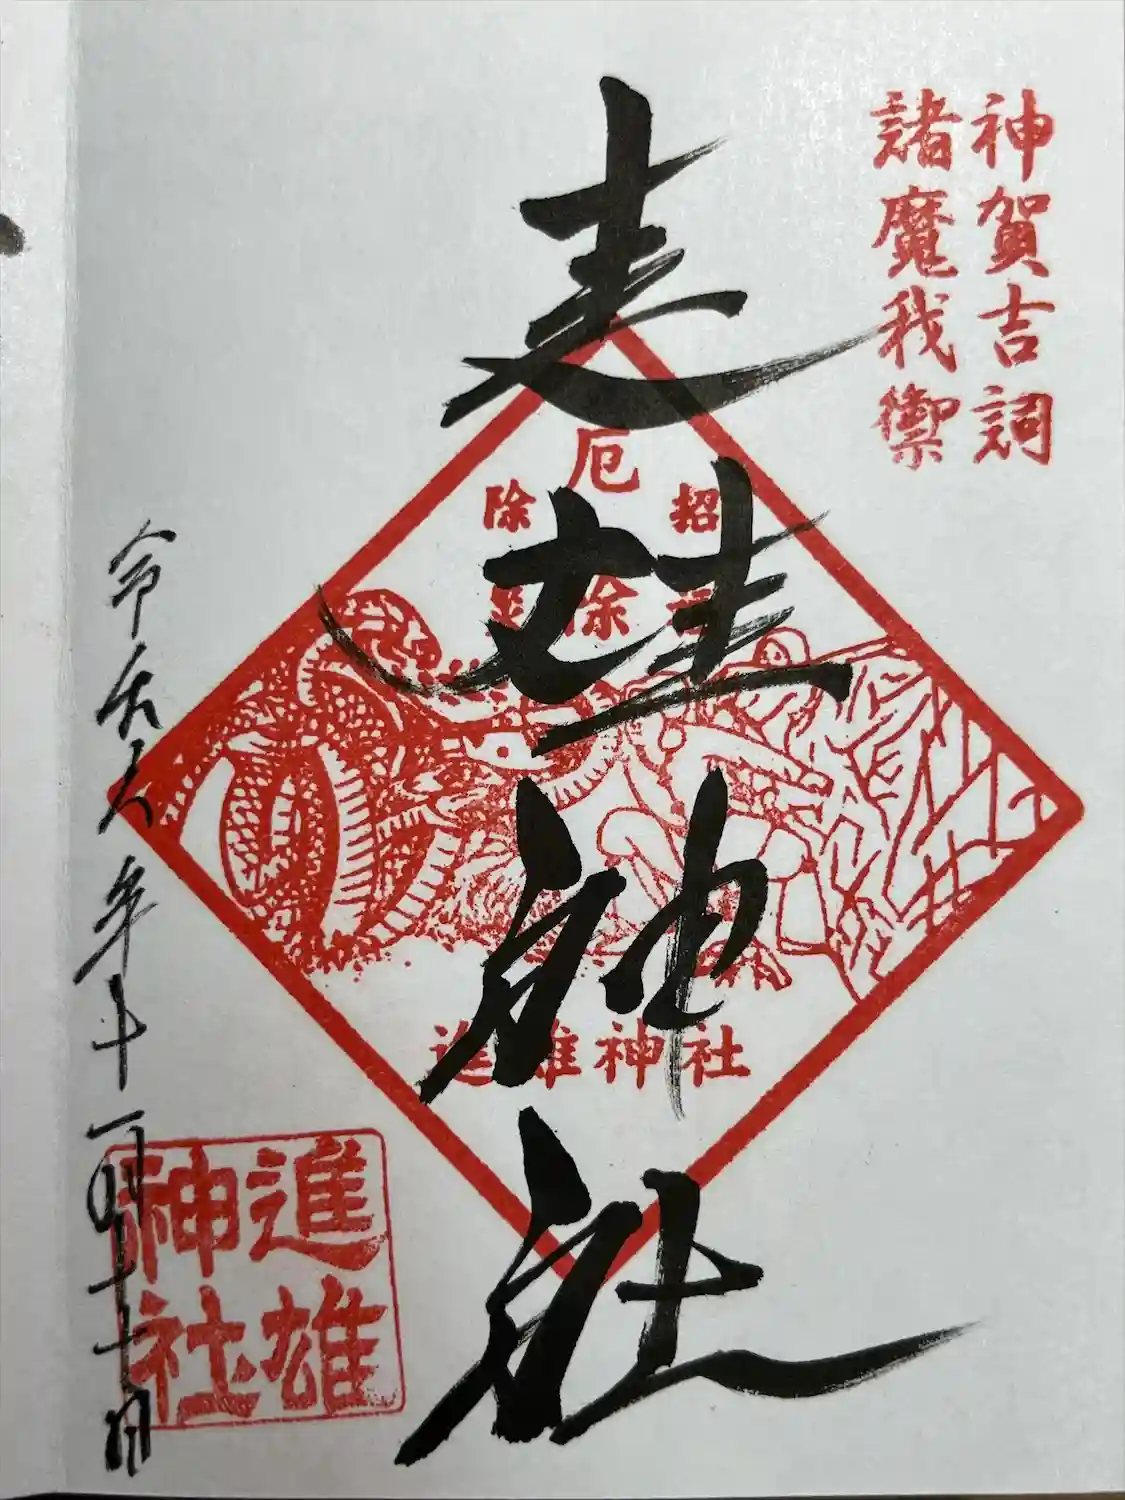 神賀吉詞
諸魔我禦
進雄神社
厄
除 招
除
進雄神社
令和六年十一月十七日
進雄
神社